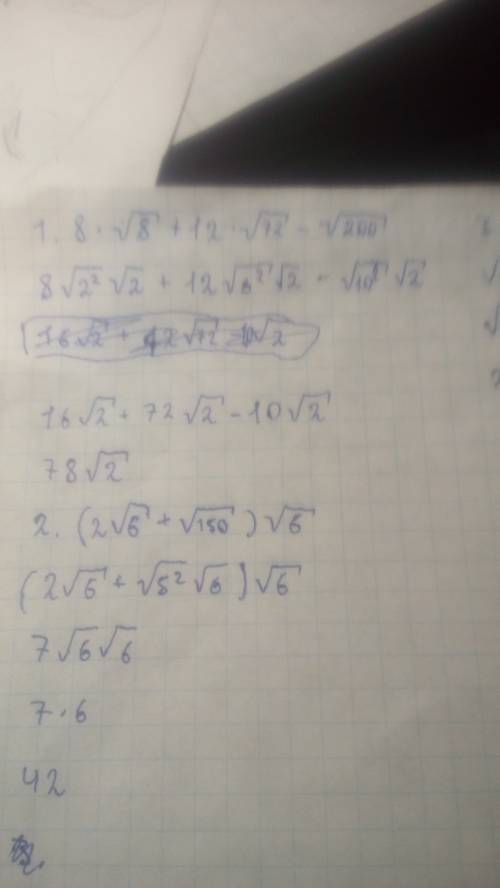 1. 8 · √8 + 12 · √72 - √200
8√2² √2 + 12√6² √2 - √10² √2
16√2 + 72√2 - 10√2
78√2
2. (2√6 + √150) √6
(2√6 + √5² √6) √6
7√6 √6
7 · 6
42